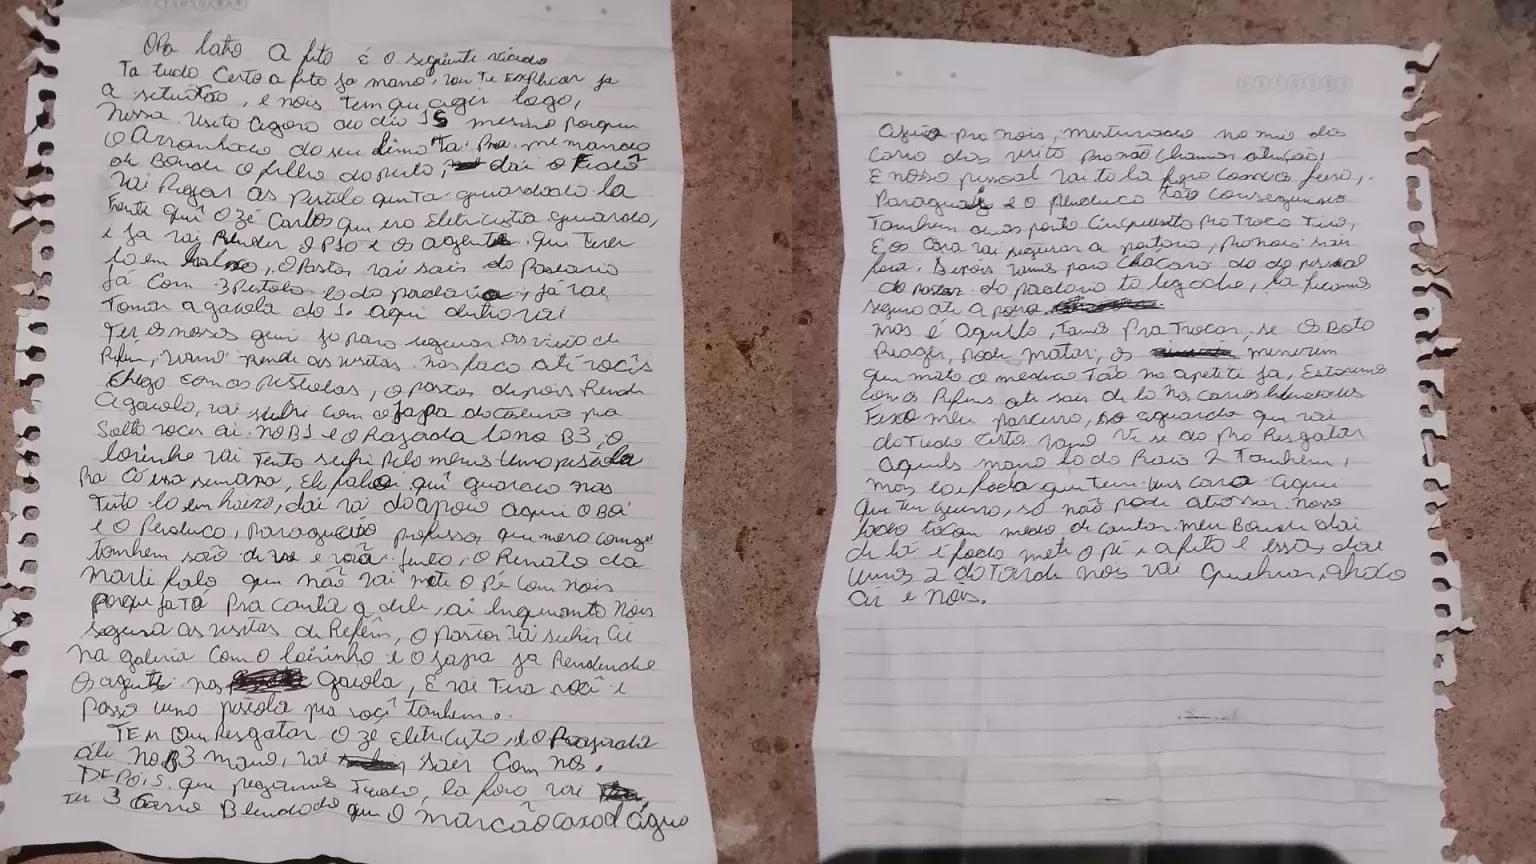 Opa latro A fito é o seguinte viado
Ta tudo Certo a fito ja mano, vou Te Explicar ja
a setuatão, e nois tem qui agir logo,
nessa visita agora do dio 15 mesmo porque
O Arrombado do seu Lima Ta Pra me mandar
de Bonde o filho da puta, dai o
vai Pegar as Pistola qui ta guardado la
Frente qui O zé Carlos que era Eletricista guardo,
e ja vai Render o P10 e os agente que Tiver
la em baixo, O Pastor vai sair da Padaria
já com 3 Pistola la da padaria, já vai
Tomar a gaiola do 1. aqui dentro vai
Ter os nossos guri ja para segurar as visita de
Refém, vamo rende as visitas nas faca até vocês
Chega com as pistolas, o pastor depois Rende
a gaiola, vai subir com o Japa do pra
Solta voces ai no B1 e o Rajada la no B3, o
loirinho vai Tenta subi pelo menos uma pistola
Pra Cá essa semana, Ele falo qui guardo nas
la em baixo, dai vai da apoio aqui o Boi
e o Penduco, Paraguaio professor que mora comigo
tambem são de e vão junto, o Renato da
falo que não vai mete o Pé com nois
porque ja tá pra canta a dele, ai enquanto nois
segura as visitas de Refém, o pastor vai subir ai
na galeria com o loirinho e o japa ja Rendendo
Os agente nas Gaiola, E vai Tira você e
passa uma pistola pra você tambem.
TEM Que Resgatar O zé eletricista, e o Rajada
ali no B3 mano, vai sair com nós.
DEPois que pegarmos Tudo, la fora vai
Ter 3 Carro Blendado que O marcão caxa d'água
pro nois, misturado no mei dos
carro das visita pra não chamar atenção,
E nosso pessoal vai ta la fora com os ferro,
Paraguai e o Penduco Tão conseguindo
Tambem duas ponto Cinquenta pra Troca Tiro,
E os cara vai segurar a portaria, pra nois sair
fora. Depois vamos para chacara do do pessoal
do pastor da padaria ta ligado he, la ficamos
seguro até a
mas é aquilo, tamo Pra Trocar, se os Bota
Reager, pode matar, os menorem
que mato o médico Tão no apetite ja, Estaremos
com os Refens até sair de la nos carros blendados
Fexo meu parceiro, so aguarda que vai
da Tudo Certo vamo ve se da pra Resgatar
aqueles mano la do Raio 2 Tambem,
mas la é foda que tem uns cara aqui
Que tem guerra, só não pode atrasar nosso
lado tocam medo de cantar meu Bonde dai
de lá é foda mete o pé, a fito é essa, das
umas 2 da Tarde nós vai Quebrar,
ai e nois.